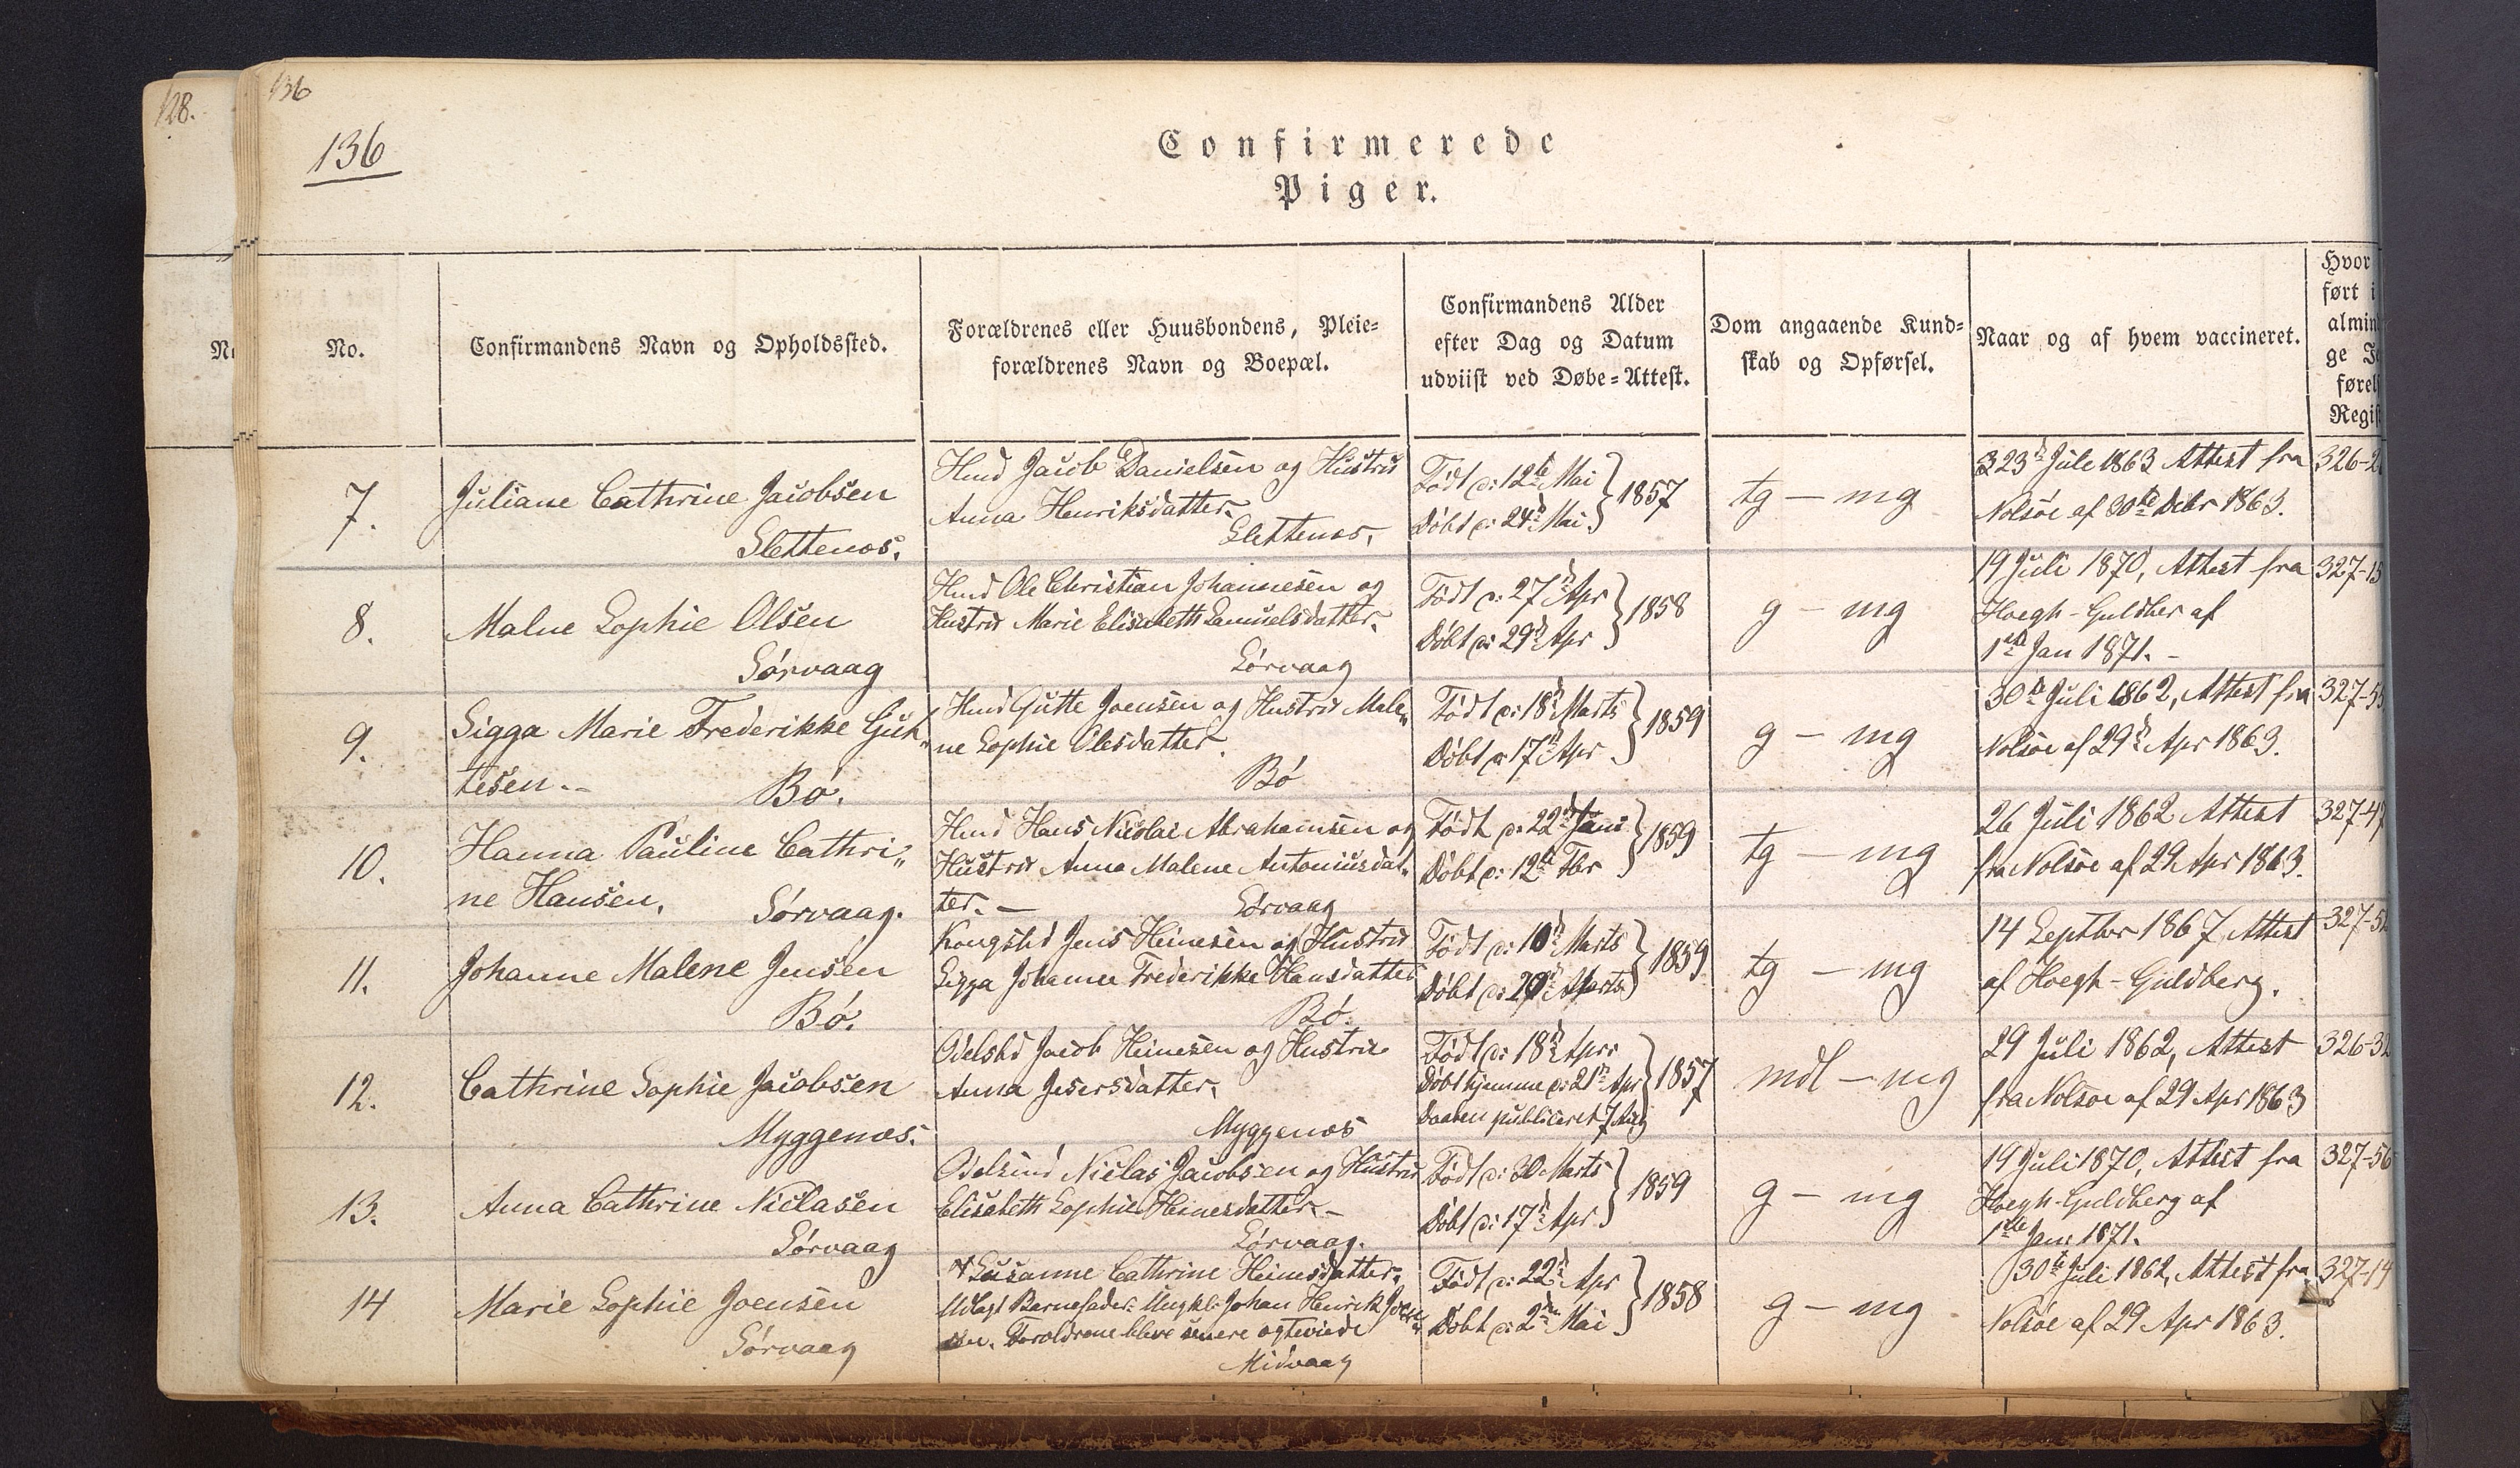 128.
136
136
Confirmerede
Piger.
No.
Confirmandens Navn og Opholdssted.
Forældrenes eller Huusbondens, Pleie=
forældrenes Navn og Boepæl.
Confirmandens Alder
efter Dag og Datum
udviist ved Døbe=Attest.
Dom angaaende Kund=
skab og Opførsel.
Naar og af hvem vaccineret.
Hvor
ført i
almin
ge Je
førel
Regist
7.
Juliane Cathrine Jacobsen
Slettenæs.
Hmd Jacob Danielsen og Hustru
Anna Henriksdatter
Slettenæs.
Født d: 12te Mai
Døbt d: 24d Mai } 1857
tg — mg
23d Juli 1863 Attest fra
Nolsöe af 30te Debr 1863.
326-2
8.
Malne Sophie Olsen
Sørvaag
Hmd Ole Christian Johannesen og
Hustru Marie Elisabeth Samuelsdatter
Sørvaag
Født d: 27d Apr
Døbt d: 29d Apr } 1858
g — mg
19 Juli 1870, Attest fra
Hoegh-Guldber af
1ste Jan 1871. -
327-15
9.
Sigga Marie Frederikke Gut„
tesen.-
Bø.
Hmd Gutte Joensen og Hustru Male„
ne Sophie Olesdatter.
Bø
Født d: 18d Marts
Døbt d: 17d Apr } 1859
g — mg
30te Juli 1862, Attest fra
Nolsöe af 29d Apr 1863.
327-55
10.
Hanna Pauline Cathri„
ne Hansen.
Sørvaag.
Hmd Hans Nicolai Abrahamsen og
Hustru Anna Malene Antoniusdat„
ter. —
Sørvaag
Født d: 22d Jani
Døbt d: 12te Fbr } 1859
tg — mg
26 Juli 1862 Attest
fra Nolsöe af 29 Apr 1863.
327-47
11.
Johanne Malene Jensen
Bø.
Kongsbd Jens Heinesen og Hustru
Sigga Johanne Frederikke Hansdatter
Bø.
Født d: 10d Marts
Døbt d: 20d Marts } 1859
tg — mg
14 Septbr 1867, Attest
af Hoegh-Guldberg.
327-52
12.
Cathrine Sophie Jacobsen
Myggenæs.
Odelsbd Jacob Heinesen og Hustru
Anna Jesersdatter.
Myggenæs
Født d: 18d Apri
Døbt hjemme d: 21d Apr
Daaben publiceret 7 Aug } 1857
mdl — mg
29 Juli 1862, Attest
fra Nolsöe af 29 Apr 1863
326-32
13.
Anna Cathrine Niclasen
Sørvaag
Odelsmd Niclas Jacobsen og Hustru
Elisabeth Sophie Heinesdatter. -
Sørvaag.
Født d: 30 Marts
Døbt d: 17d Apr } 1859
g — mg
19 Juli 1870, Attest fra
Hoegh-Guldberg af
1ste Jan: 1871.
327-56
14
Marie Sophie Joensen
Sørvaag
Susanne Cathrine Heinesdatter,
Udlagt Barnefader: Ungkl: Johan Henrik Joen„
sen. Forældrene bleve senere ægteviede
Midvaag
Født d: 22d Apr
Døbt d: 2den Mai } 1858
g — mg
30te Juli 1862, Attest fra
Nolsöe af 29 Apr 1863.
327-14